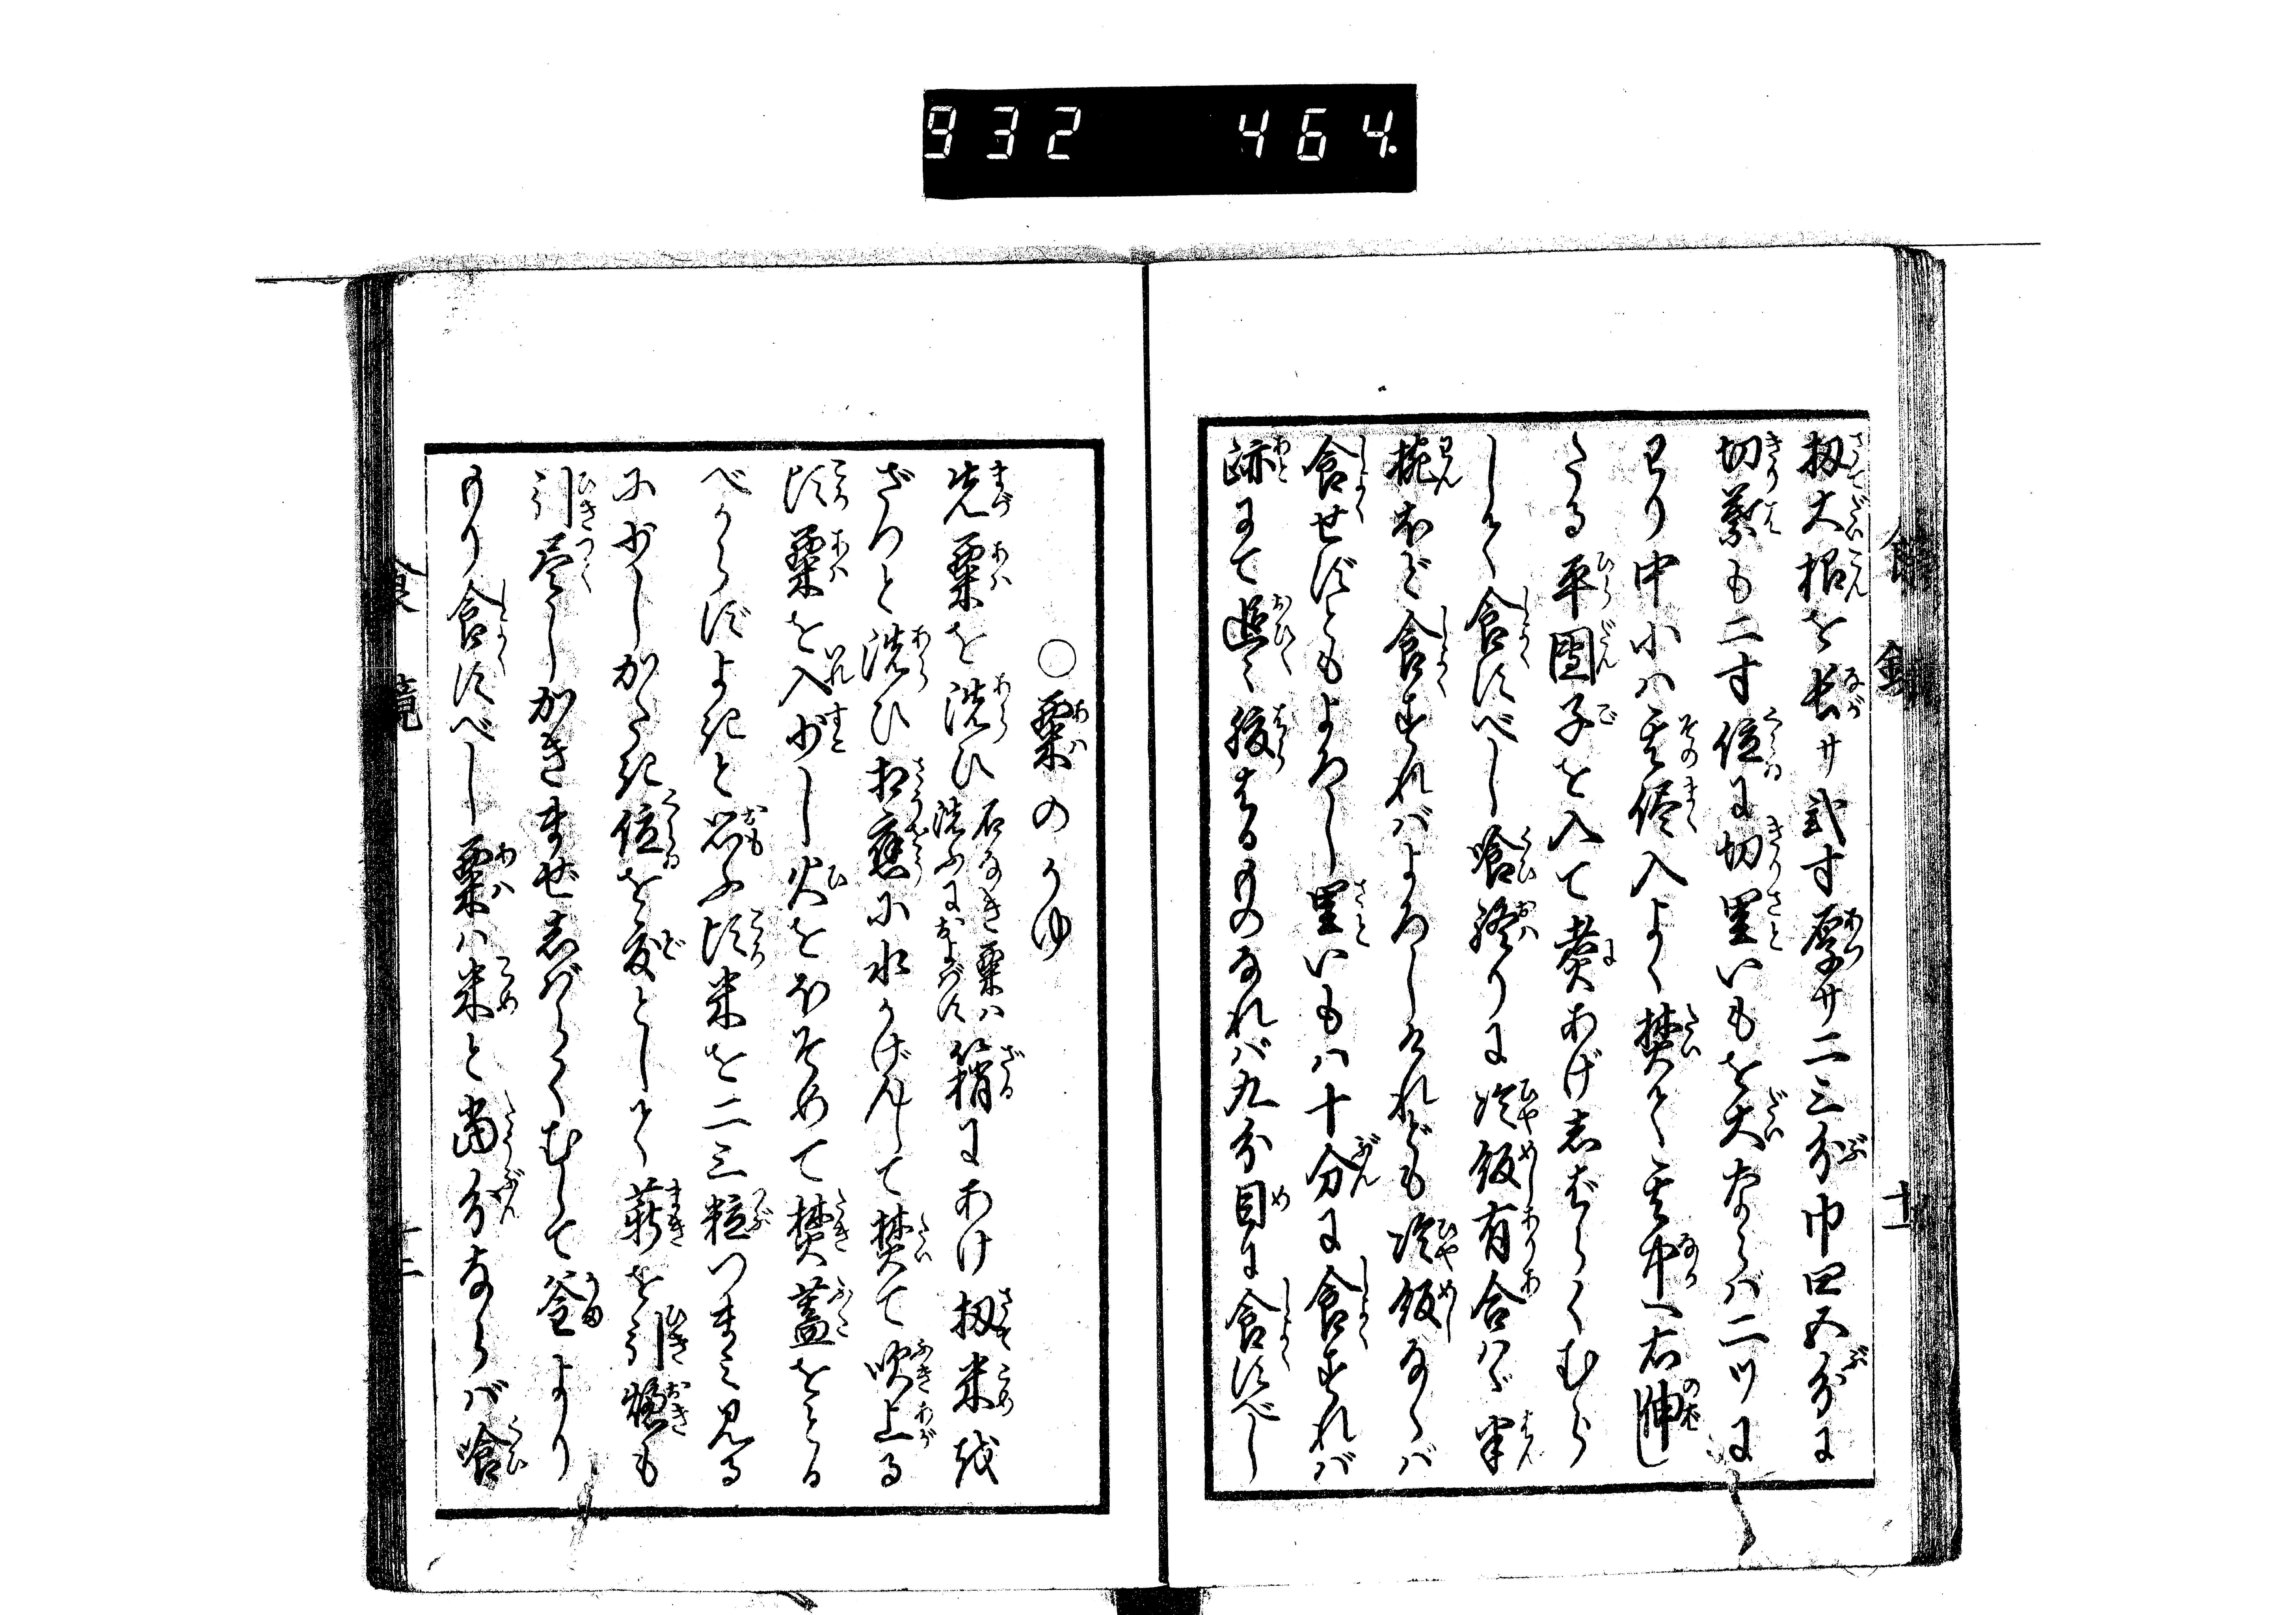 932 464.
扨大根を長サ弐寸厚サ二三分巾四五分に
切葉も二寸位に切里いもを大ならハ二ツに
わり中小ハ其侭入よく焚て其中へ右伸し
たる平團子を入て煑あげ志ばらくむら
して食すべし喰終りに冷飯有合ハヾ半
椀ほど食すればよろしけれども冷飯ならバ
食せずともよろし里いもハ十分に食すれバ
跡にて追々腹はるものなれバ九分目に食すべし
○粟のかゆ
先粟を洗ひ石なき粟ハ洗ふにおよばず箱にあけ扨米を
ざつと洗ひ相應に水かげんして焚て吹上る
頃粟を入少し火をほそめて焚蓋をとる
べからずよきと思ふ頃米を二三粒つまミ見る
に少しかたき位を度として薪を引燠も
引尽しかきませ志ばらくむして釜より
もり食すべし粟ハ米と當分ならバ喰
食鏡
十一
食鏡
十二